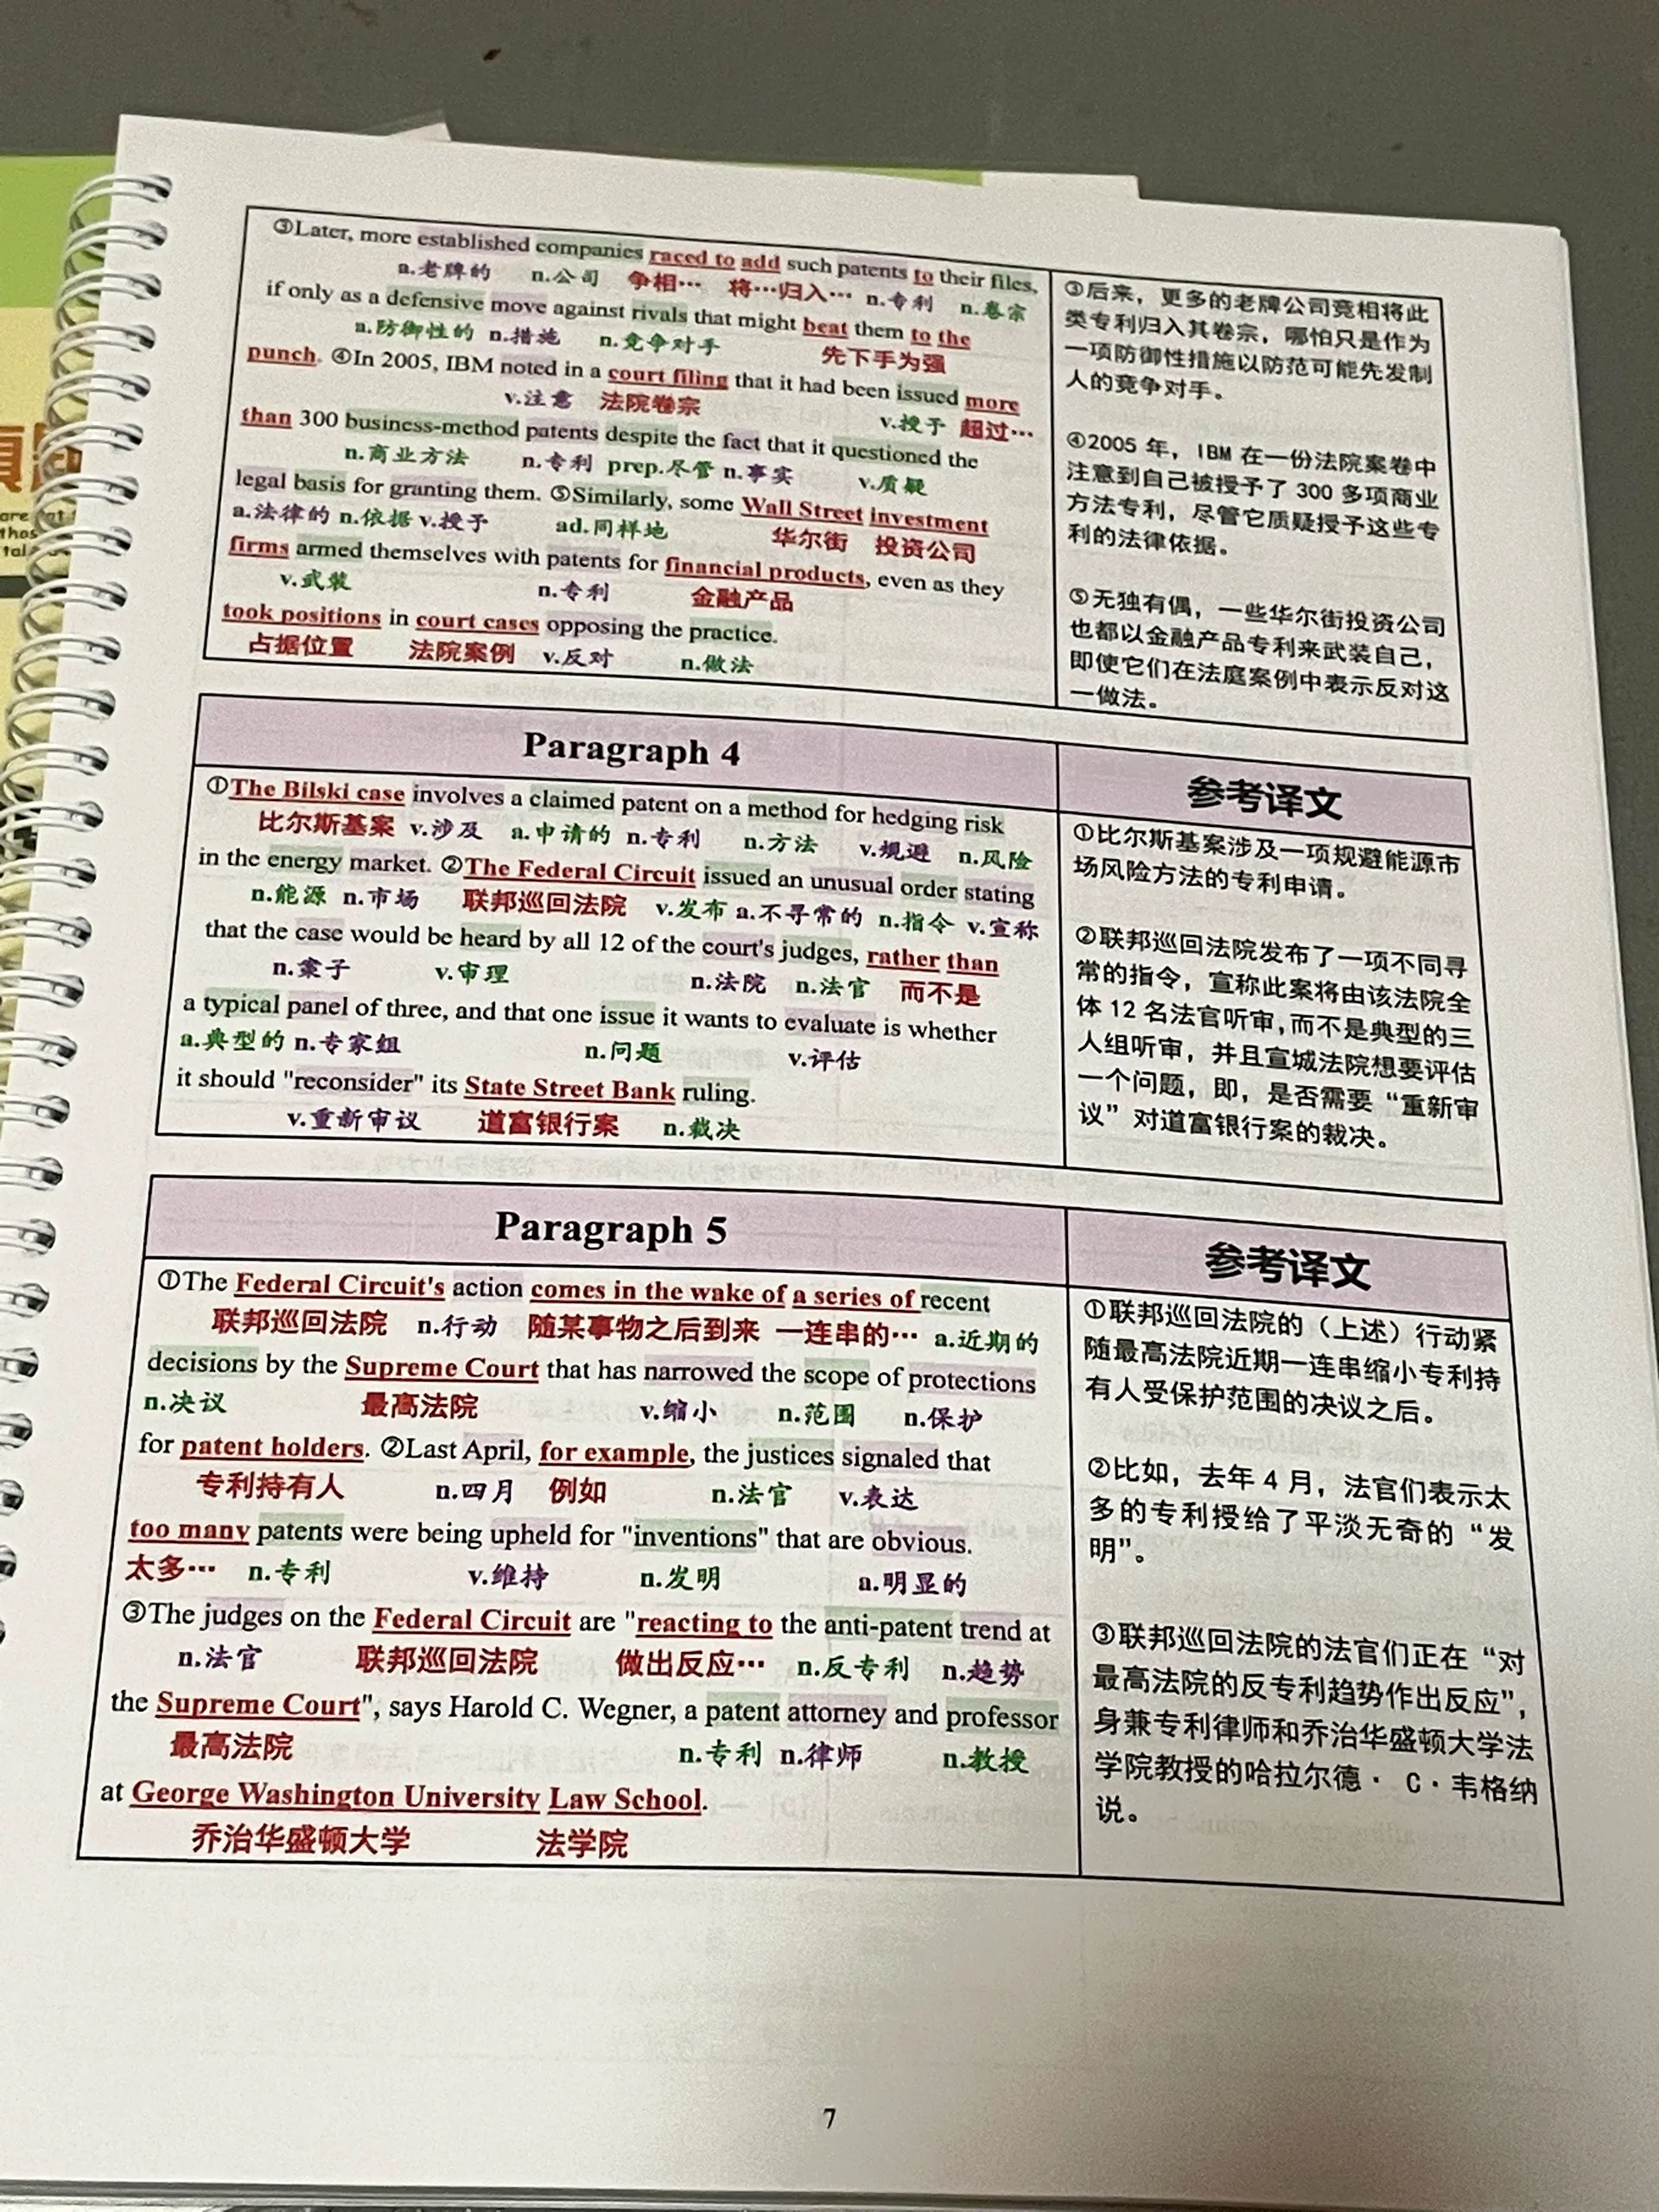 ③Later, more established companies raced to add such patents to their files,
a.老牌的 n.公司 争相… 将…归入… n.专利 n.卷宗
if only as a defensive move against rivals that might beat them to the
a.防御性的 n.措施 n.竞争对手 先下手为强
punch. ④In 2005, IBM noted in a court filing that it had been issued more
v.注意 法院卷宗 v.授予 超过…
than 300 business-method patents despite the fact that it questioned the
n.商业方法 n.专利 prep.尽管 n.事实 v.质疑
legal basis for granting them. ⑤Similarly, some Wall Street investment
a.法律的 n.依据 v.授予 ad.同样地 华尔街 投资公司
firms armed themselves with patents for financial products, even as they
v.武装 n.专利 金融产品
took positions in court cases opposing the practice.
占据位置 法院案例 v.反对 n.做法
③后来，更多的老牌公司竞相将此
类专利归入其卷宗，哪怕只是作为
一项防御性措施以防范可能先发制
人的竞争对手。
④2005 年，IBM 在一份法院案卷中
注意到自己被授予了 300 多项商业
方法专利，尽管它质疑授予这些专
利的法律依据。
⑤无独有偶，一些华尔街投资公司
也都以金融产品专利来武装自己，
即使它们在法庭案例中表示反对这
一做法。
Paragraph 4
①The Bilski case involves a claimed patent on a method for hedging risk
比尔斯基案 v.涉及 a.申请的 n.专利 n.方法 v.规避 n.风险
in the energy market. ②The Federal Circuit issued an unusual order stating
n.能源 n.市场 联邦巡回法院 v.发布 a.不寻常的 n.指令 v.宣称
that the case would be heard by all 12 of the court's judges, rather than
n.案子 v.审理 n.法院 n.法官 而不是
a typical panel of three, and that one issue it wants to evaluate is whether
a.典型的 n.专家组 n.问题 v.评估
it should "reconsider" its State Street Bank ruling.
v.重新审议 道富银行案 n.裁决
参考译文
①比尔斯基案涉及一项规避能源市
场风险方法的专利申请。
②联邦巡回法院发布了一项不同寻
常的指令，宣称此案将由该法院全
体 12 名法官听审，而不是典型的三
人组听审，并且宣城法院想要评估
一个问题，即，是否需要“重新审
议”对道富银行案的裁决。
Paragraph 5
①The Federal Circuit's action comes in the wake of a series of recent
联邦巡回法院 n.行动 随某事物之后到来 一连串的… a.近期的
decisions by the Supreme Court that has narrowed the scope of protections
n.决议 最高法院 v.缩小 n.范围 n.保护
for patent holders. ②Last April, for example, the justices signaled that
专利持有人 n.四月 例如 n.法官 v.表达
too many patents were being upheld for "inventions" that are obvious.
太多… n.专利 v.维持 n.发明 a.明显的
③The judges on the Federal Circuit are "reacting to the anti-patent trend at
n.法官 联邦巡回法院 做出反应… n.反专利 n.趋势
the Supreme Court", says Harold C. Wegner, a patent attorney and professor
最高法院 n.专利 n.律师 n.教授
at George Washington University Law School.
乔治华盛顿大学 法学院
参考译文
①联邦巡回法院的（上述）行动紧
随最高法院近期一连串缩小专利持
有人受保护范围的决议之后。
②比如，去年 4 月，法官们表示太
多的专利授给了平淡无奇的“发
明”。
③联邦巡回法院的法官们正在“对
最高法院的反专利趋势作出反应”，
身兼专利律师和乔治华盛顿大学法
学院教授的哈拉尔德· C·韦格纳
说。
7